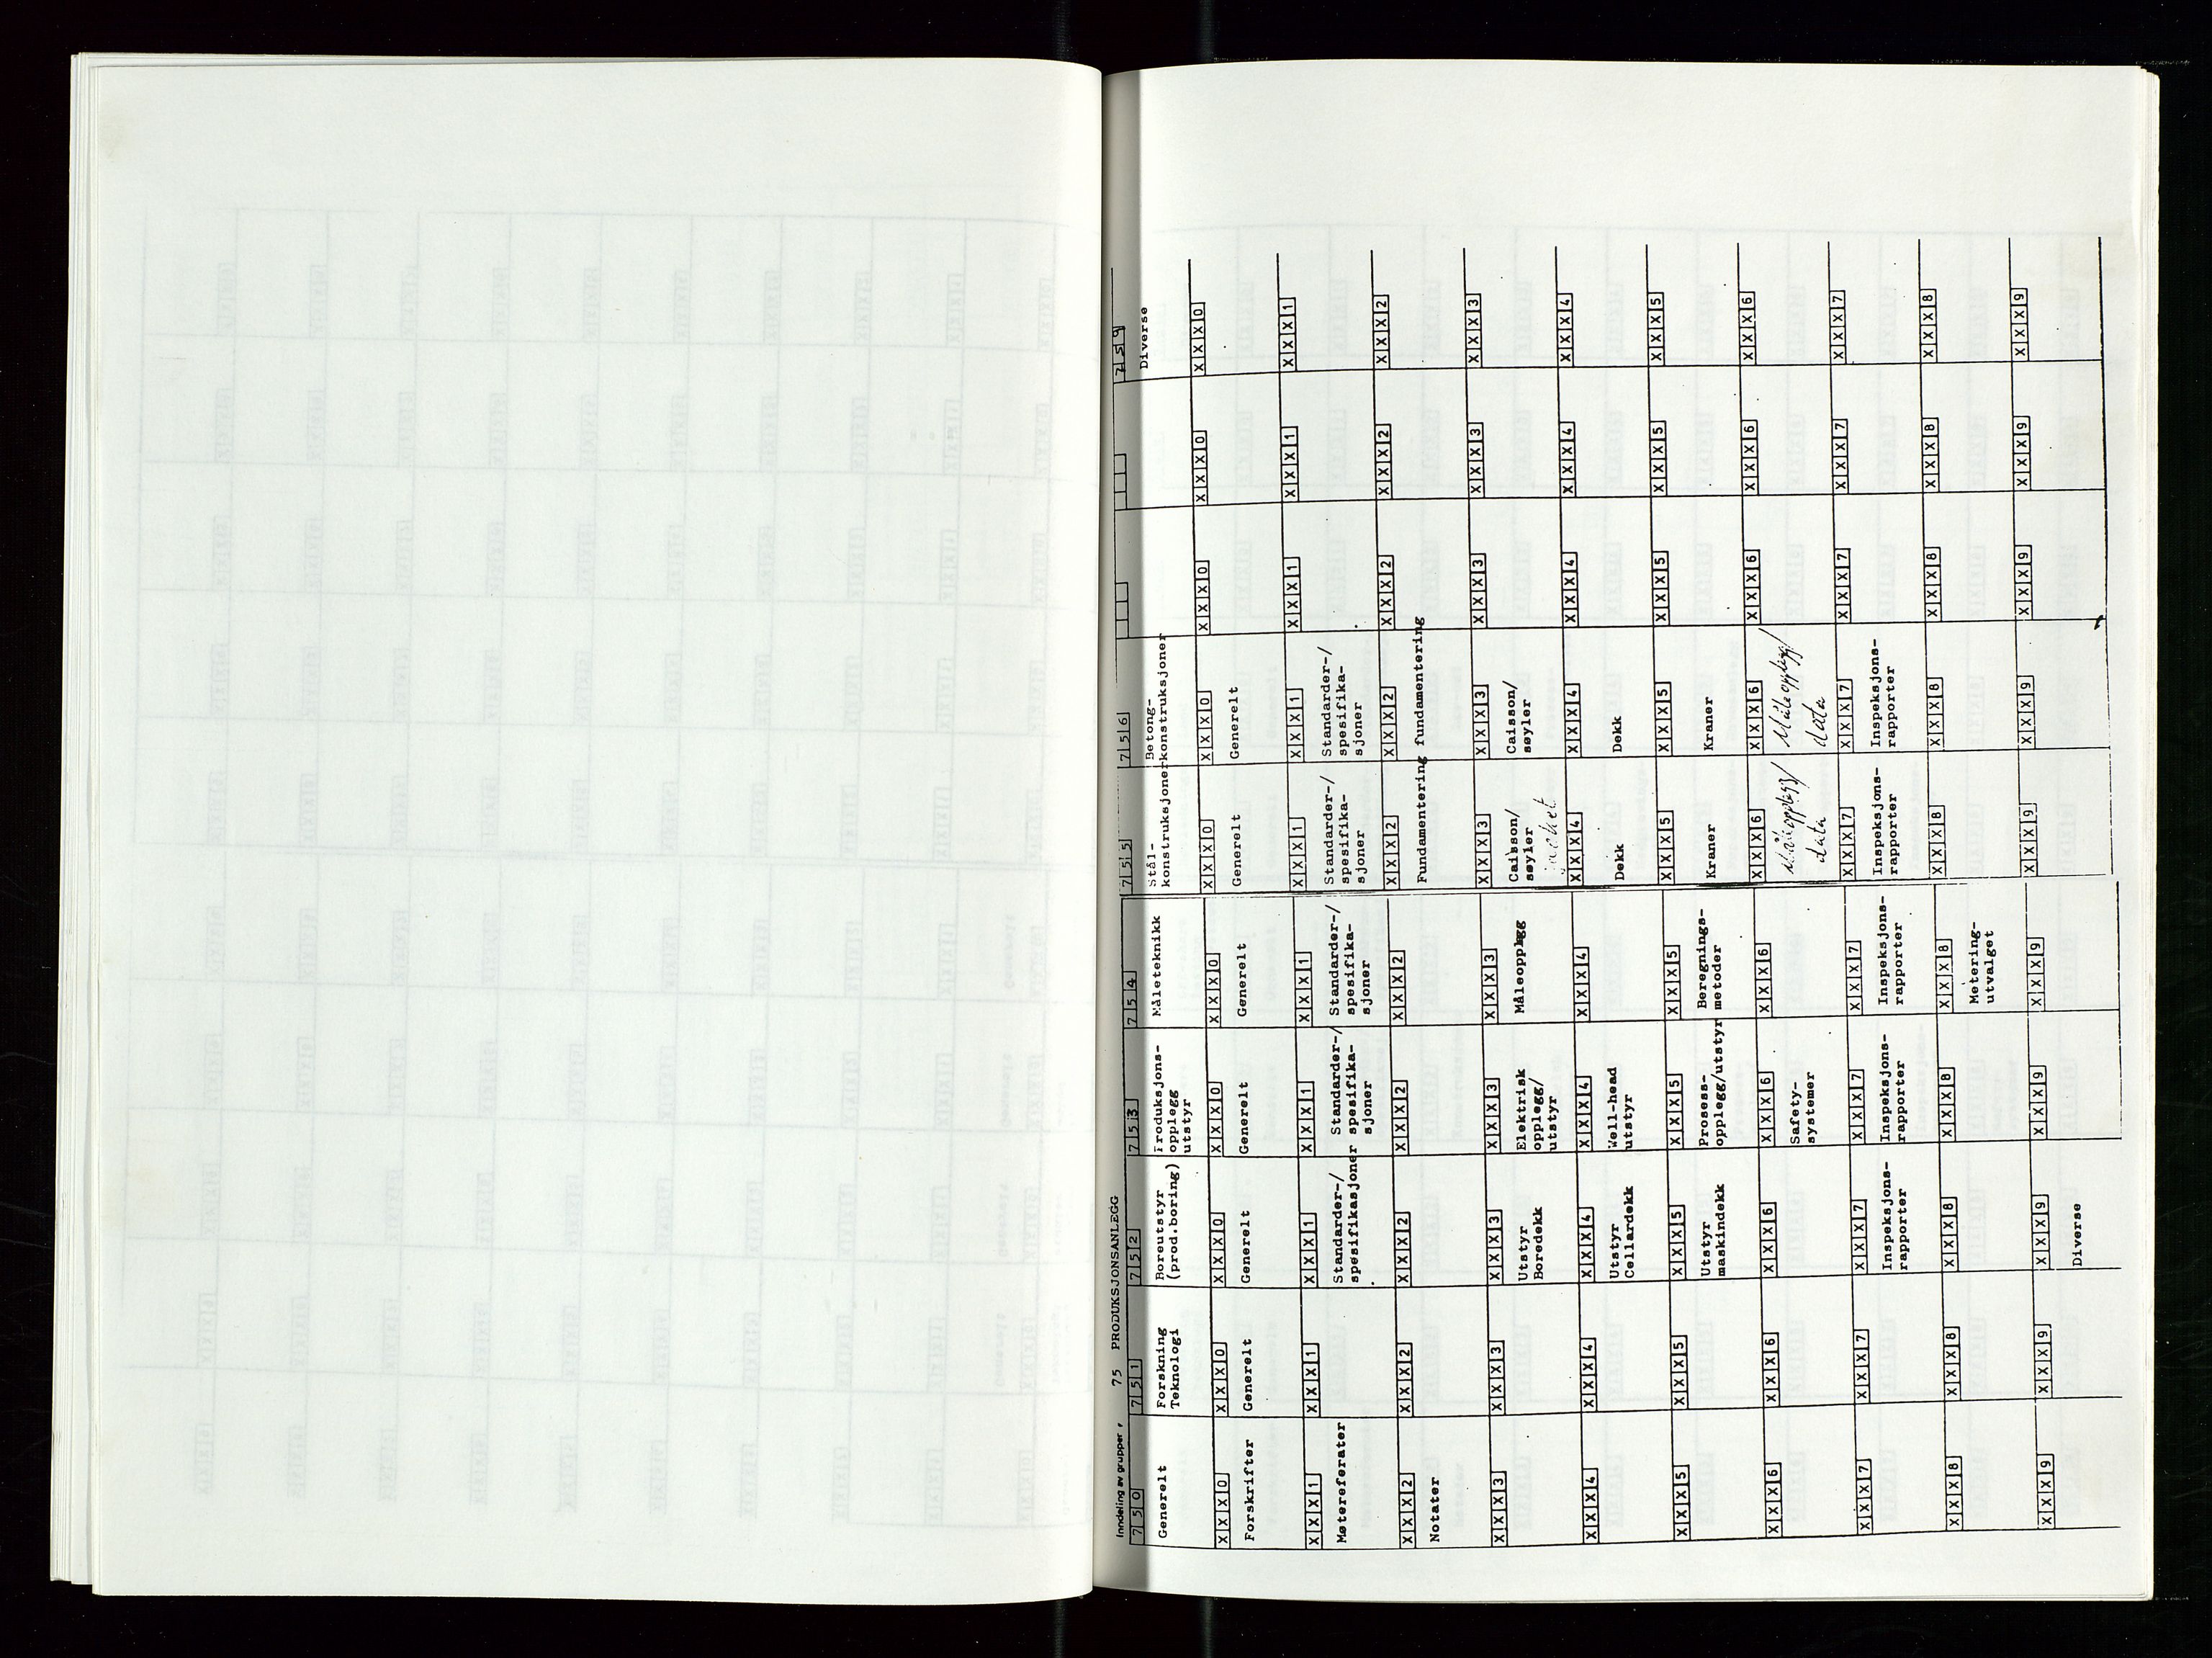 Inndeling av grupper, 75 PRODUKSJONSANLEGG
750
Generelt
XXX0
Forskrifter
XXX1
Møtereferater
XXX2
Notater
XXX3
XXX4
XXX5
XXX6
XXX7
XXX8
XXX9
751
Forskning
Teknologi
XXX0
Generelt
XXX1
XXX2
XXX3
XXX4
XXX5
XXX6
XXX7
XXX8
XXX9
752
Boreutstyr
(prod.boring)
XXX0
Generelt
XXX1
Standarder-/
spesifikasjoner
XXX2
XXX3
Utstyr
Boredekk
XXX4
Utstyr
Cellardekk
XXX5
Utstyr
maskindekk
XXX6
XXX7
Inspeksjons-
rapporter
XXX8
XXX9
Diverse
753
Produksjons-
opplegg
utstyr
XXX0
Generelt
XXX1
Standarder-/
spesifika-
sjoner
XXX2
XXX3
Elektrisk
opplegg/
utstyr
XXX4
Well-head
utstyr
XXX5
Prosess-
opplegg/utstyr
XXX6
Safety-
systemer
XXX7
Inspeksjons-
rapporter
XXX8
XXX9
754
Måleteknikk
XXX0
Generelt
XXX1
Standarder-/
spesifika-
sjoner
XXX2
XXX3
Måleopplegg
XXX4
XXX5
Beregnings-
metoder
XXX6
XXX7
Inspeksjons-
rapporter
XXX8
Metering-
utvalget
XXX9
755
Stål-
konstruksjoner
XXX0
Generelt
XXX1
Standarder-/
spesifika-
sjoner
XXX2
Fundamentering
XXX3
Caisson/
søyler
XXX4
Dekk
XXX5
Kraner
XXX6
Måleopplegg/
data
XXX7
Inspeksjons-
rapporter
XXX8
XXX9
756
Betong-
konstruksjoner
XXX0
Generelt
XXX1
Standarder-/
spesifika-
sjoner
XXX2
fundamentering
XXX3
Caisson/
søyler
XXX4
Dekk
XXX5
Kraner
XXX6
Måleopplegg/
data
XXX7
Inspeksjons-
rapporter
XXX8
XXX9
XXX0
XXX1
XXX2
XXX3
XXX4
XXX5
XXX6
XXX7
XXX8
XXX9
XXX0
XXX1
XXX2
XXX3
XXX4
XXX5
XXX6
XXX7
XXX8
XXX9
759
Diverse
XXX0
XXX1
XXX2
XXX3
XXX4
XXX5
XXX6
XXX7
XXX8
XXX9